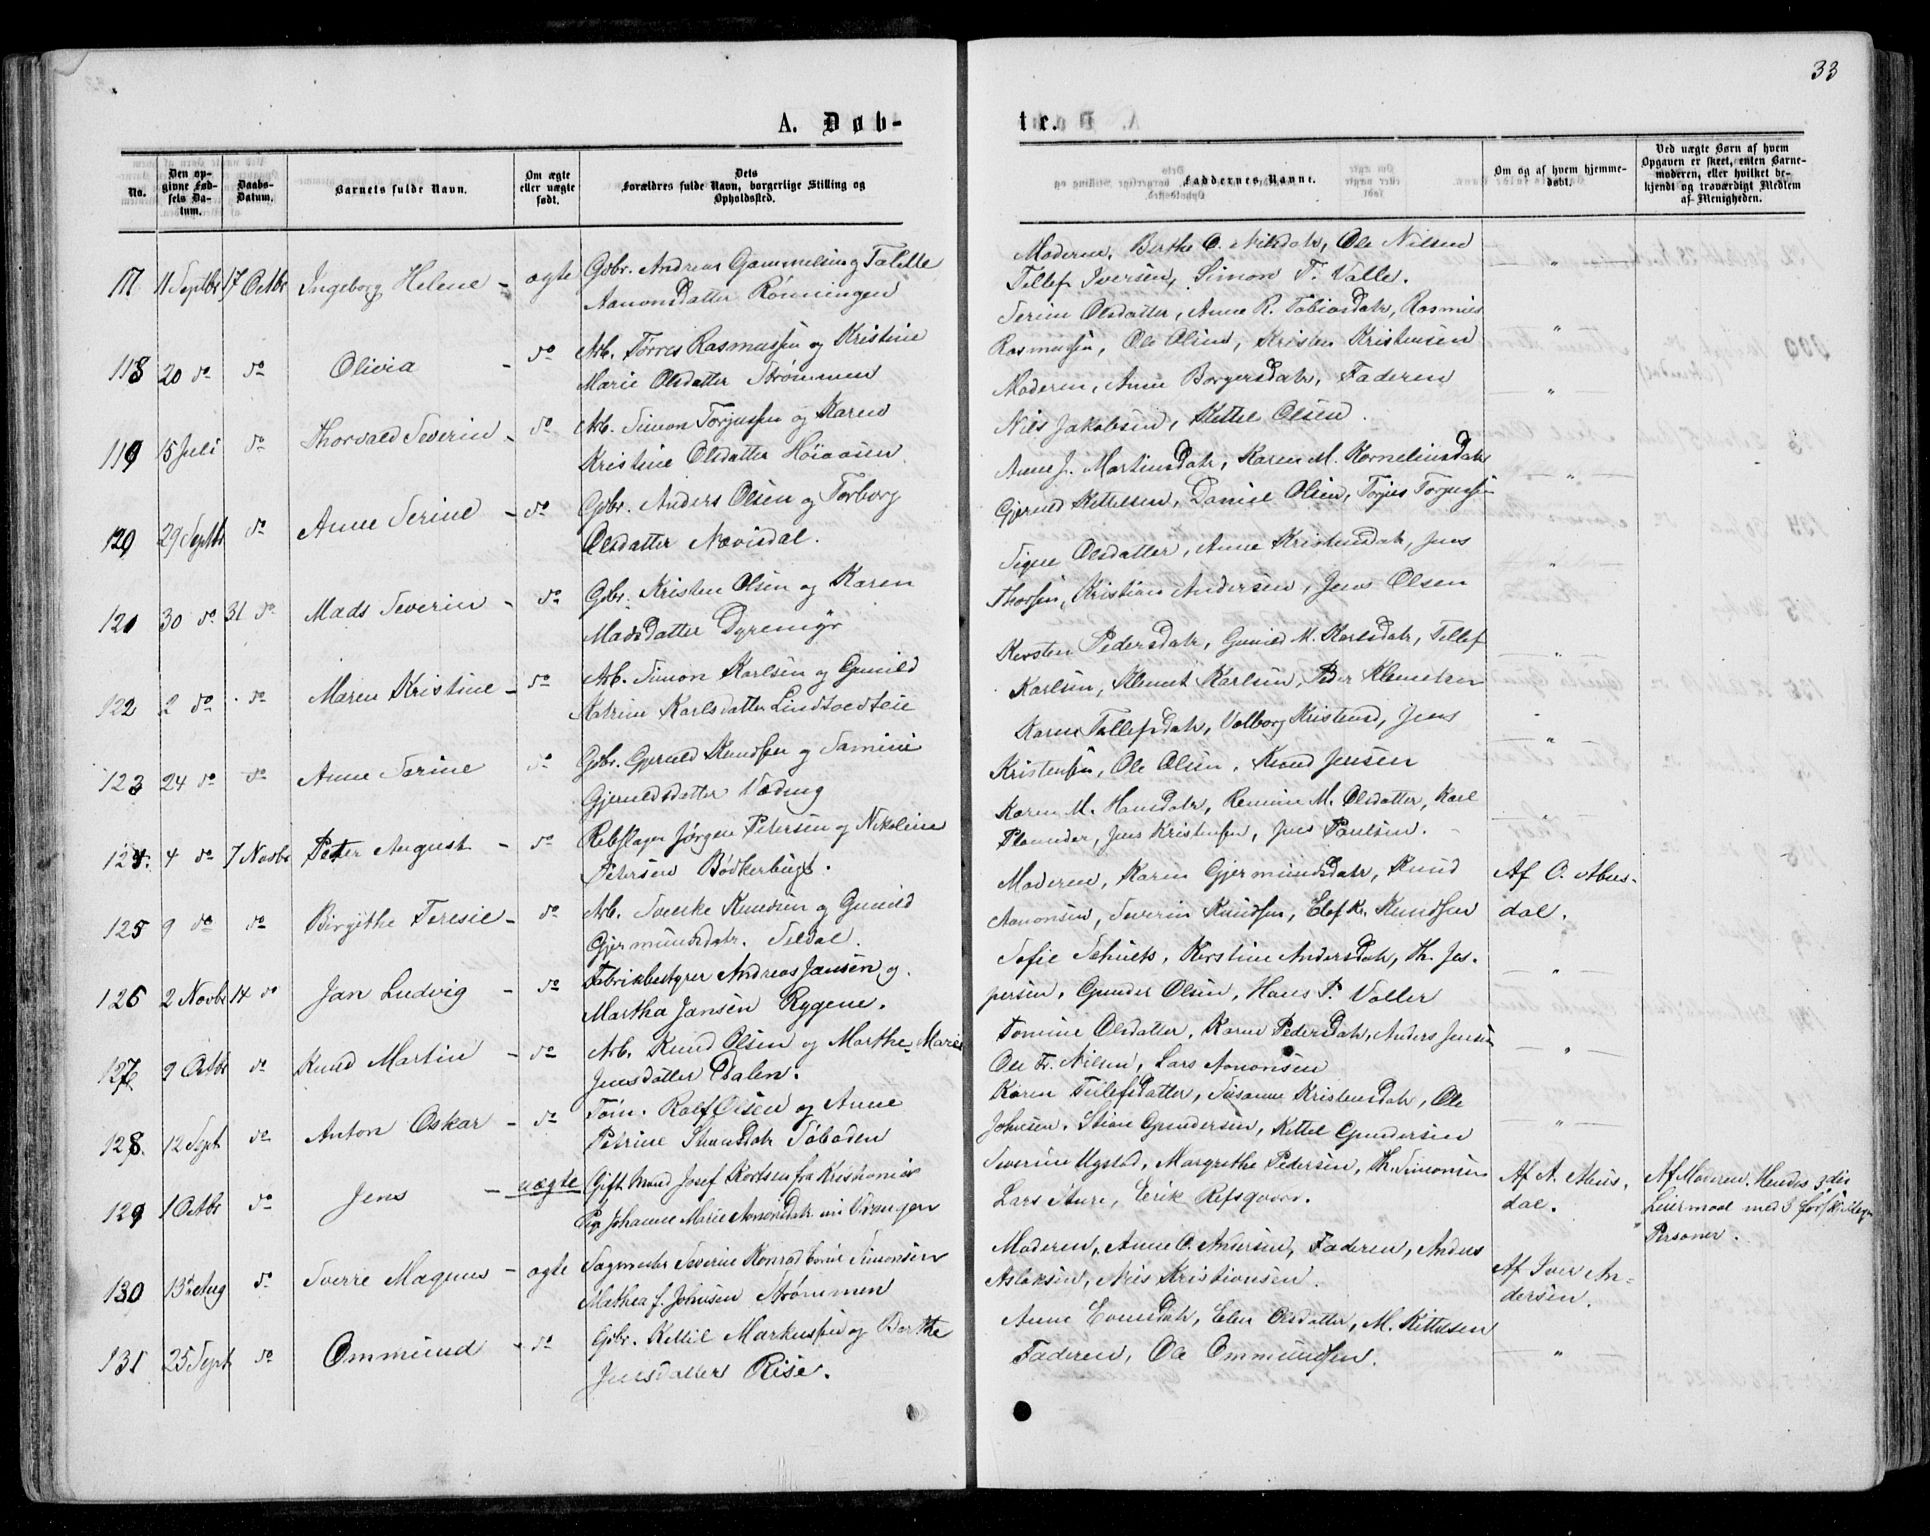 33
A. Døb-
te.
No.
Den op-
givne Fød-
sels Da-
tum.
Daabs-
Datum.
Barnets fulde Navn.
Om ægte
eller uægte
født.
Dets
Forældres fulde Navn, borgerlige Stilling og
Opholdssted.
Faddernes Navne.
Om og af hvem hjemme-
døbt.
Ved uægte Børn af hvem
Opgaven er skeet, enten Barne-
moderen, eller hvilket be-
kjendt og troværdigt Medlem
af Menigheden.
117 11 Septbr 17 Octbr Ingeborg Helene - ægte Gbr. Andreas Gammelsen og Talette
Aanonsdatter Rønningen
Moderen, Berthe O. Nilsdatr, Ole Nilsen
Tellef Iversen, Simon T. Valle.
118 20 do do Olivia - do Arb. Torres Rasmussen og Kristine
Marie Olsdatter Strømmen
Serine Olsdatter, Anne R. Tobiasdatr, Rasmus
Rasmussen, Ole Olsen, Kristen Kristensen
119 15 Juli do Thorvald Severin - do Arb. Simon Torjussen og Karen
Kristine Olsdatter Høiaasen
Moderen, Anne Borgersdatr, Faderen
Nils Jakobsen, Kittel Olsen.
120 29 Septbr do Anne Serine - do Gbr. Anders Olsen og Torborg
Olsdatter Nævisdal.
Anne J. Martinsdatr, Karen M. Korneliusdatr
Gjeruld Kittelsen, Daniel Olsen, Torjus Torjussen
121 30 do 31 do Mads Severin - do Gbr. Kristen Olsen og Karen
Madsdatter Dyremyr
Signe Olsdatter, Anne Kristensdatr, Jens
Thorsen, Kristian Andersen, Jens Olsen
122 2 do do Maren Kristine - do Arb. Simon Karlsen og Gunild
Katrine Karlsdatter Lindtvedteie
Kirsten Pedersdatr, Gunild M. Karlsdatr, Tellef
Karlsen, Klemet Karlsen, Peder Klemetsen
123 24 do do Anne Serine do Gbr. Gjeruld Knudsen og Samine
Gjeruldsdatter Væding
Karen Tellefsdatr, Valborg Kristensd, Jens
Kristensen, Ole Olsen, Knud Jensen
124. 4 do 7 Novbr Peter August - do Rebslager Jørgen Petersen og Nikoline
Petersen Bødkerbugt.
Karen M. Hansdatr, Remine M. Olsdatter, Karl
Jens Kristensen, Jens Paulsen.
125 9 do do Birgithe Teresie - do Arb. Sveske Knudsen og Gunild
Gjermundsdatr. Seldal.
Moderen, Karen Gjermundsdatr, Knud
Aanonsen, Severin Knudsen, Elef K. Knudsen
Af O. Abus-
dal.
126 2 Novbr 14 do Jan Ludvig - do Fabrikbestyrer Andreas Jansen og.
Martha Jansen Rygene.
Sofie Schultz, Kirstine Andersdatr, Th. Jes-
persen, Gunder Olsen, Hans P. Valler
127 9 Octbr do Knud Martin - do Arb. Knud Olsen og Marthe Marie
Jensdatter Dalen.
Tomine Olsdatter, Karen Pedersdatr, Anders Jensen
Ole Fr. Nilsen, Lars Aanonsen
128. 12 Sept do Anton Oskar - do Tøm. Rolf Olsen og Anne
Petrine Steensdatr Søboden
Karen Tellefsdatter, Susanne Kristensdatr, Ole
Johnsen, Stian Gundersen, Kittel Gundersen
129 1 Octbr do Jens - uægte Gift Mand Josef Kortsen fra Kristiania
Pige Johanne Marie Aanonsdatr Vrangen
Severine Ugstad, Margrethe Pedersen, Th. Simonsen
Lars Ature, Erik Refsgaard.
Af A. Abus-
dal.
Af Moderen. Hendes 3die
Leiermaal med 3 forskjellige
Personer.
130 13de Aug do Sverre Magnus - ægte Sagmester Severin Konrad Simonsen
Mathea f. Johnsen Strømmen
Moderen, Anne O. Andersen, Faderen, Anders
Aslaksen, Nils Kristiansen.
Af Iver An-
dersen.
131 25 Sept do Ommund - do Gbr. Kittil Markussen og Berthe
Jensdatters Rise.
Anne Evensdatr, Elen Olsdatter, M. Kittelsen
Faderen, Ole Ommundsen.